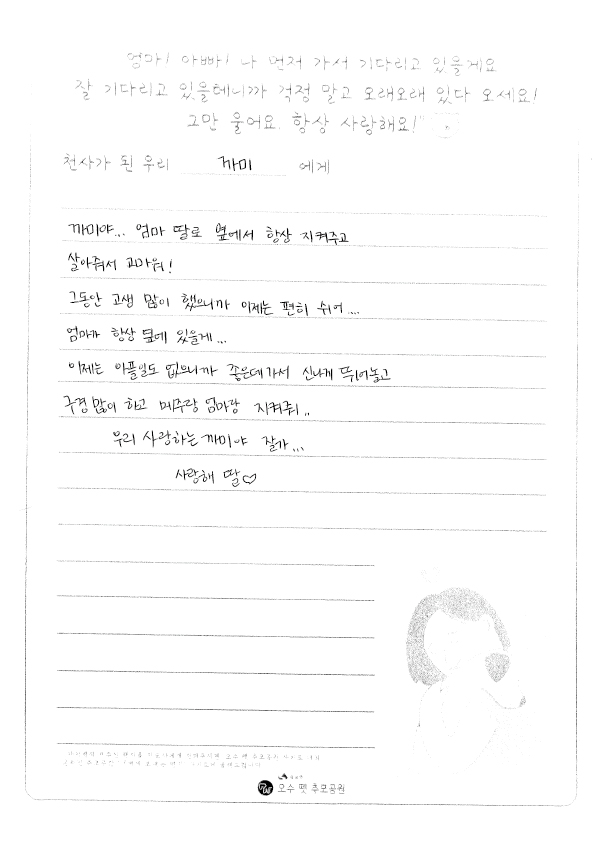 엄마! 아빠! 나 먼저 가서 기다리고 있을게요
잘 기다리고 있을테니까 걱정 말고 오래오래 있다 오세요!
그만 울어요. 항상 사랑해요!
천사가 된 우리 까미 에게
까미야... 엄마 딸로 옆에서 항상 지켜주고
살아줘서 고마워!
그동안 고생 많이 했으니까 이제는 편히 쉬어...
엄마가 항상 옆에 있을게...
이제는 아플일도 없으니까 좋은데가서 신나게 뛰어놀고
구경 많이 하고 메주랑 엄마랑 지켜줘..
우리 사랑하는 까미야 잘가...
사랑해 딸♡
오수 펫 추모공원